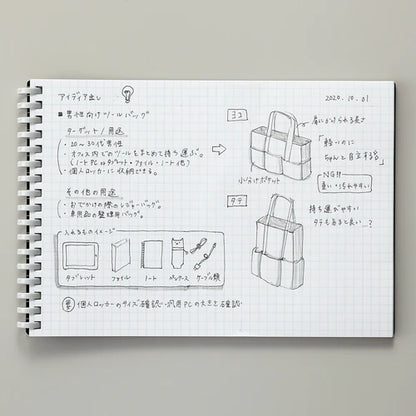 アイディア出し
2020.10.01
■男性向けツールバッグ
ターゲット/用途
・20～30代男性
・オフィス内でのツールをまとめて持ち運ぶ。
(ノートPC or タブレット・ファイル・ノート他)
・個人ロッカーに収納できる。
その他の用途
・おでかけの際のレジャーバッグ。
・車用品の整理用バッグ。
入れるものイメージ
タブレット
ファイル
ノート
ペンケース
ケーブル類
個人ロッカーのサイズ確認・汎用PCの大きさ確認
ヨコ
肩にかけられる長さ
「軽いのに
きちんと自立する」
NG!!
重い・汚れやすい
小分けポケット
タテ
持ち運びやすい
タテもあると良い…?